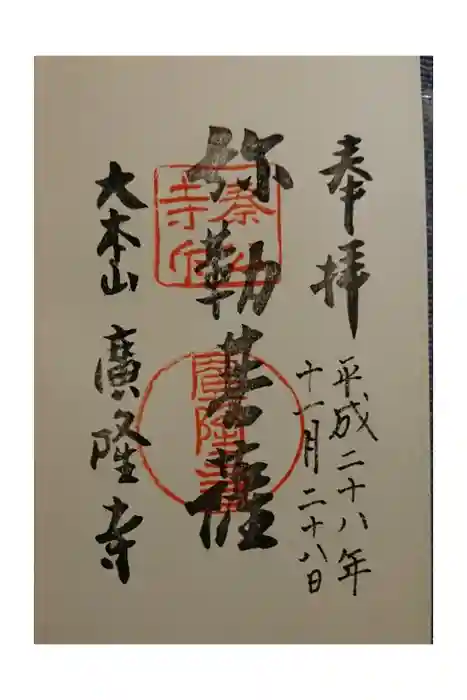 奉拝
平成二十八年
十一月二十八日
弥勒菩薩
大本山 廣隆寺